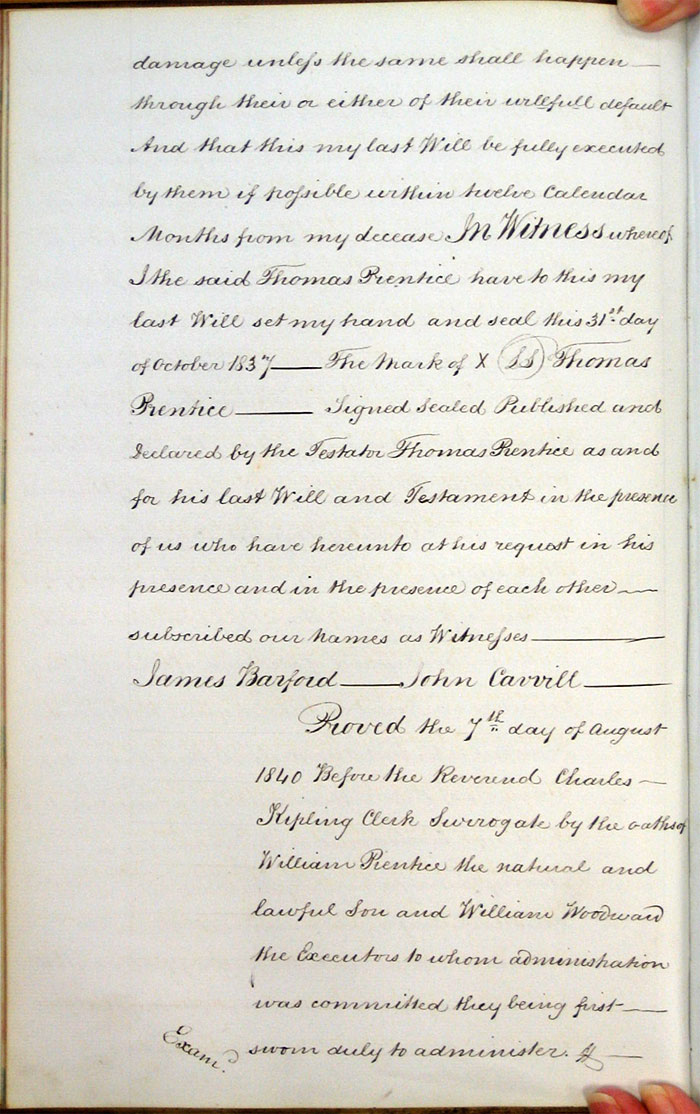 damage unless the same shall happen —
through their or either of their willfull default
And that this my last Will be fully executed
by them if possible within twelve Calendar
Months from my decease In Witness whereof
I the said Thomas Prentice have to this my
last Will set my hand and seal this 31st day
of October 1837 — The Mark of X LS Thomas
Prentice — Signed Sealed Published and
Declared by the Testator Thomas Prentice as and
for his last Will and Testament in the presence
of us who have hereunto at his request in his
presence and in the presence of each other —
subscribed our names as Witnesses —
James Barford — John Carvill —
Proved the 7th day of August
1840 Before the Reverend Charles —
Kipling Clerk Surrogate by the oaths of
William Prentice the natural and
lawful Son and William Woodward
the Executors to whom administration
was committed they being first —
sworn duly to administer. —
Examd.